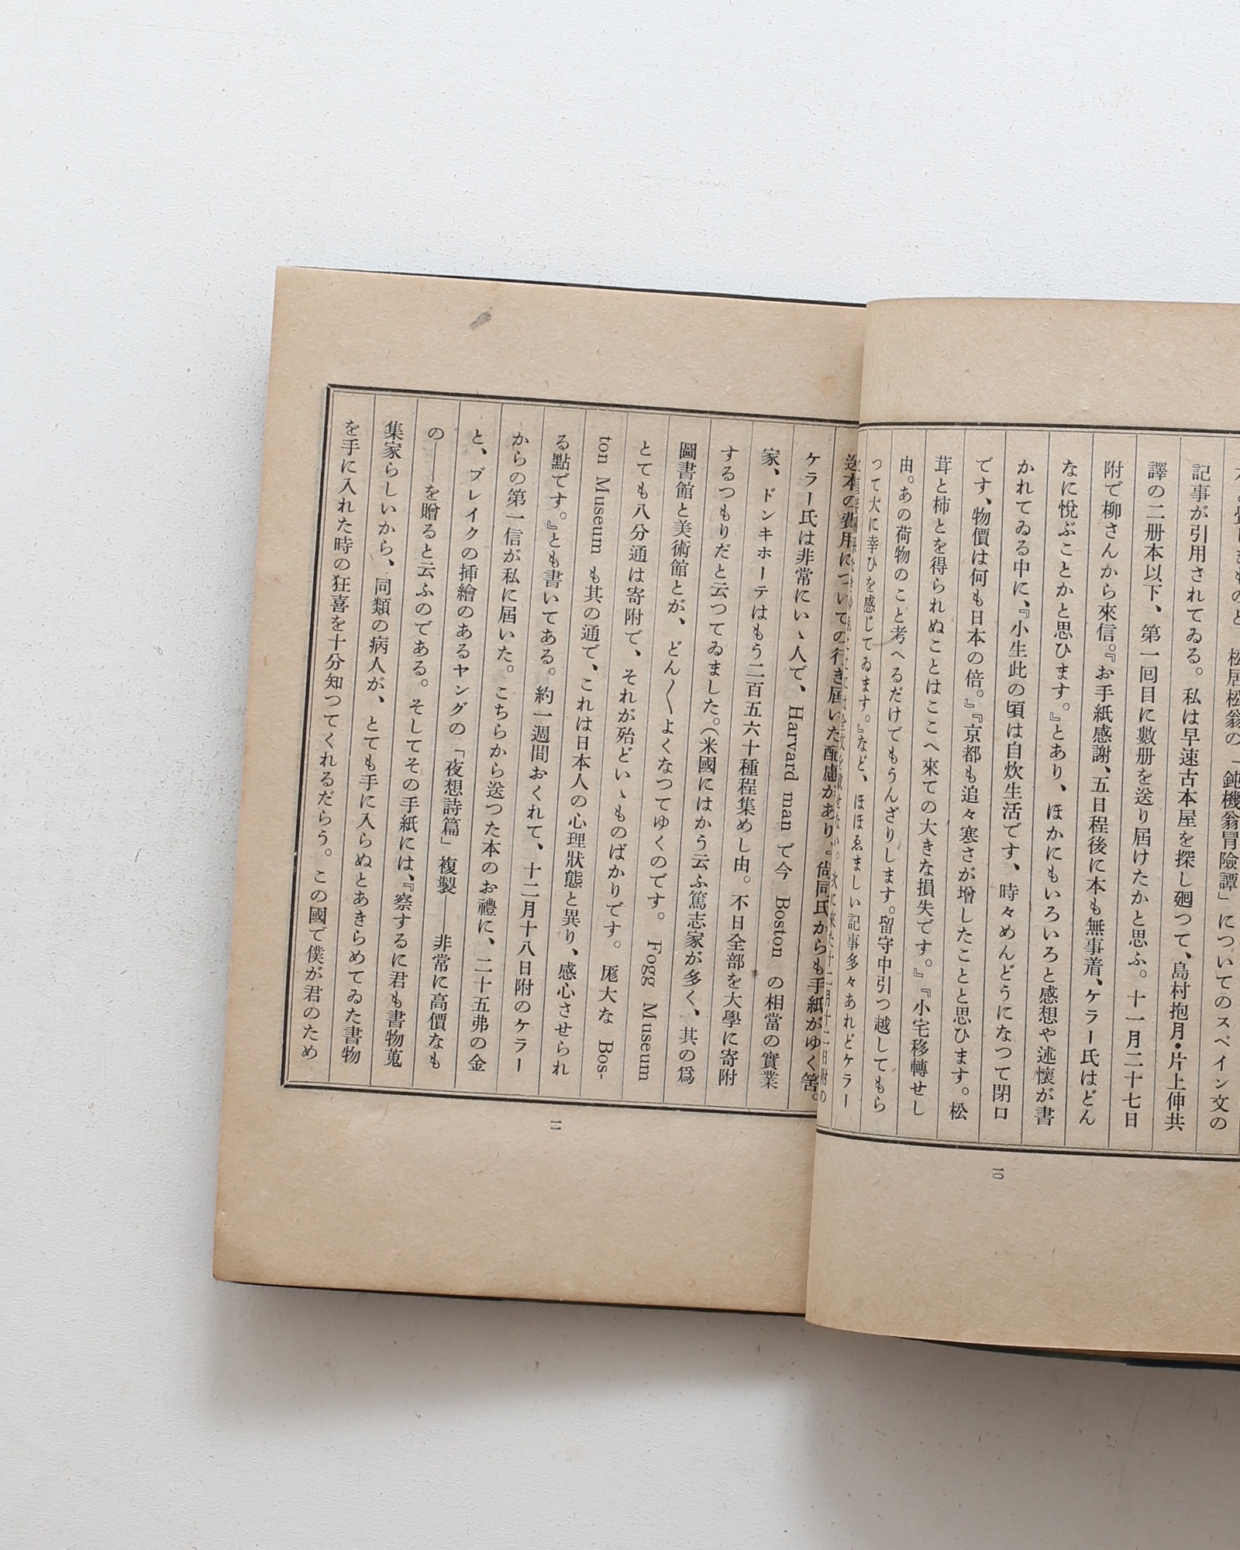 松居松翁の「鈍機翁冒險譚」についてのスペイン文の
記事が引用されてゐる。私は早速古本屋を探し廻つて、島村抱月・片上伸共
譯の二册本以下、第一回目に數册を送り屆けたかと思ふ。十一月二十七日
附で柳さんから來信。『お手紙感謝、五日程後に本も無事着、ケラー氏はどん
なに悅ぶことかと思ひます。』とあり、ほかにもいろいろと感想や述懷が書
かれてゐる中に、『小生此の頃は自炊生活です、時々めんどうになつて閉口
です、物價は何も日本の倍。』『京都も追々寒さが增したことと思ひます。松
茸と柿とを得られぬことはここへ來ての大きな損失です。』『小宅移轉せし
由。あの荷物のこと考へるだけでもうんざりします。留守中引つ越してもら
つて大に幸ひを感じてゐます。』など、ほほゑましい記事多々あれどケラー
10
送本の費用についての行き屆いた配慮があり、『尙同氏からも手紙がゆく筈。
ケラー氏は非常にいゝ人で、Harvard man で今 Boston の相當の實業
家、ドンキホーテはもう二百五六十種程集めし由。不日全部を大學に寄附
するつもりだと云つてゐました。(米國にはかう云ふ篤志家が多く、其の爲
圖書館と美術館とが、どん〳〵よくなつてゆくのです。 Fogg Museum
とても八分通は寄附で、それが殆どいゝものばかりです。厖大な Bos-
ton Museum も其の通で、これは日本人の心理狀態と異り、感心させられ
る點です。』とも書いてある。約一週間おくれて、十二月十八日附のケラー
からの第一信が私に屆いた。こちらから送つた本のお禮に、二十五弗の金
と、ブレイクの挿繪のあるヤングの「夜想詩篇」複製　非常に高價なも
の――を贈ると云ふのである。そしてその手紙には、『察するに君も書物蒐
集家らしいから、同類の病人が、とても手に入らぬとあきらめてゐた書物
を手に入れた時の狂喜を十分知つてくれるだらう。この國で僕が君のため
11